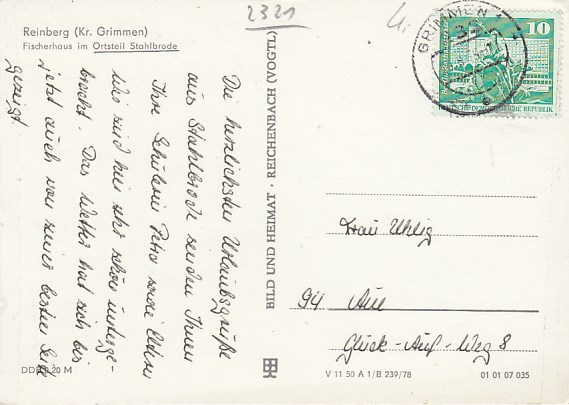 2321
Reinberg (Kr. Grimmen)
Fischerhaus im Ortsteil Stahlbrode
Die herzlichsten Urlaubsgrüße
aus Stahlbrode senden Ihnen
Ihre Schülerin Petra sowie Eltern
Wir sind hier sehr schön unterge-
bracht. Das Wetter hat sich bis
jetzt auch von seiner besten Seite
gezeigt.
BILD UND HEIMAT · REICHENBACH (VOGTL)
GRIMMEN 1
10
DEUTSCHE DEMOKRATISCHE REPUBLIK
Frau Uhlig
94 Aue
Glück-Auf-Weg 8
DDR 0,20 M
V 11 50 A 1/B 239/78
01 01 07 035